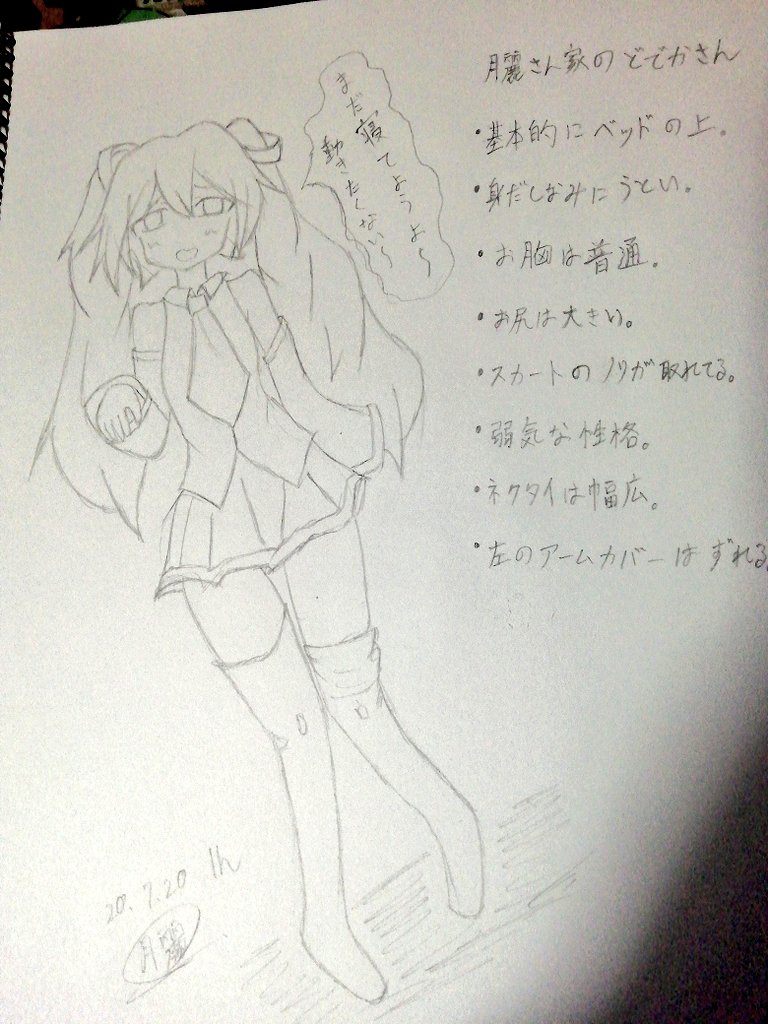 月麗さん家のどでかさん
・基本的にベッドの上。
・身だしなみにうとい。
・お胸は普通。
・お尻は大きい。
・スカートのノリが取れてる。
・弱気な性格。
・ネクタイは幅広。
・左のアームカバーはずれる。
まだ寝てようよ～
動きたくない～
20.7.20 1h
月麗